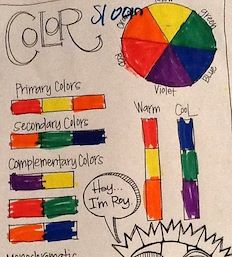 COLOR
Sloan
green
Red
Blue
Violet
Primary Colors
Secondary Colors
Warm
Cool
Complementary Colors
Hey...
I'm Roy.
Monochromatic